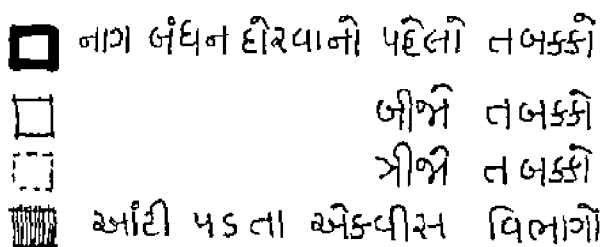 નાગ બંધન દોરવાનો પહેલો તબક્કો
બીજો તબક્કો
ત્રીજો તબક્કો
આંટી પડતા એકવીસ વિભાગો